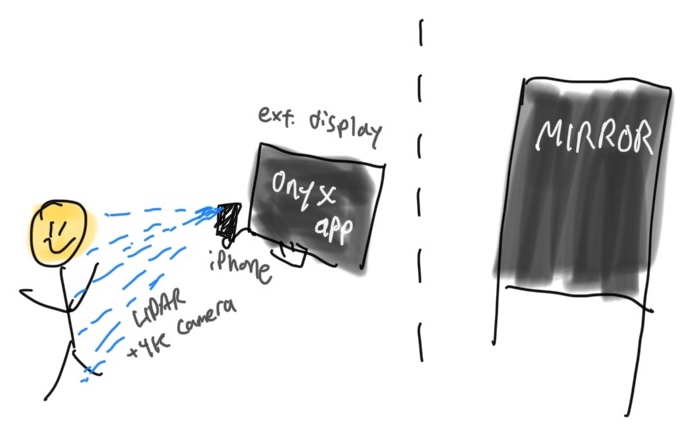 ext. display
onyx
app
iPhone
LiDAR
+4k camera
MIRROR